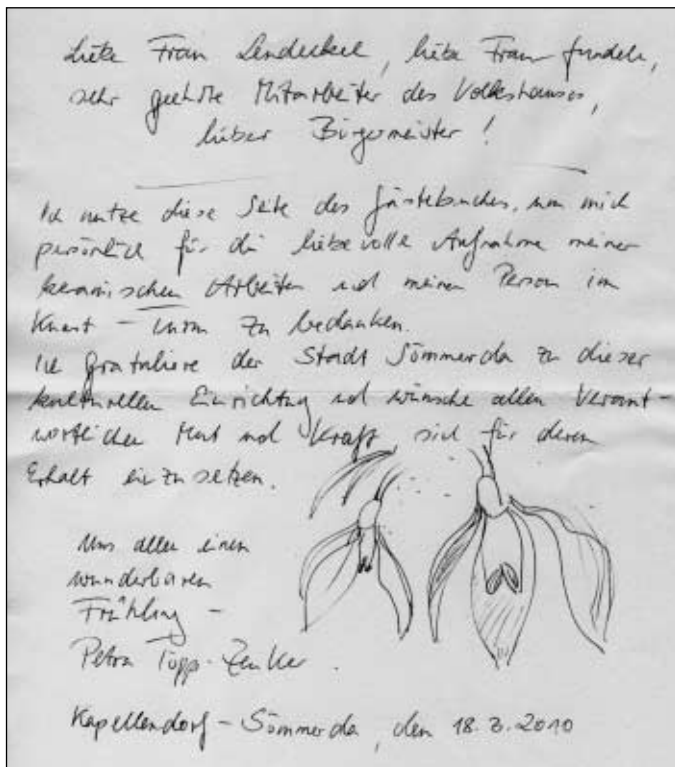 Liebe Frau Lendeckel, liebe Frau
sehr geehrte Mitarbeiter des Volkshauses,
lieber Bürgermeister!
Ich nutze diese Seite des Gästebuches, um mich
persönlich für die liebevolle Aufnahme meiner
keramischen Arbeiten und meiner Person im
zu bedanken.
Ich gratuliere der Stadt Sömmerda zu dieser
kulturellen Einrichtung und wünsche allen Verant-
wortlichen Mut und Kraft, sich für deren
Erhalt einzusetzen.
Uns allen einen
wunderbaren
Frühling –
Petra Töpp-Zenker
Kapellendorf – Sömmerda, den 18.3.2010